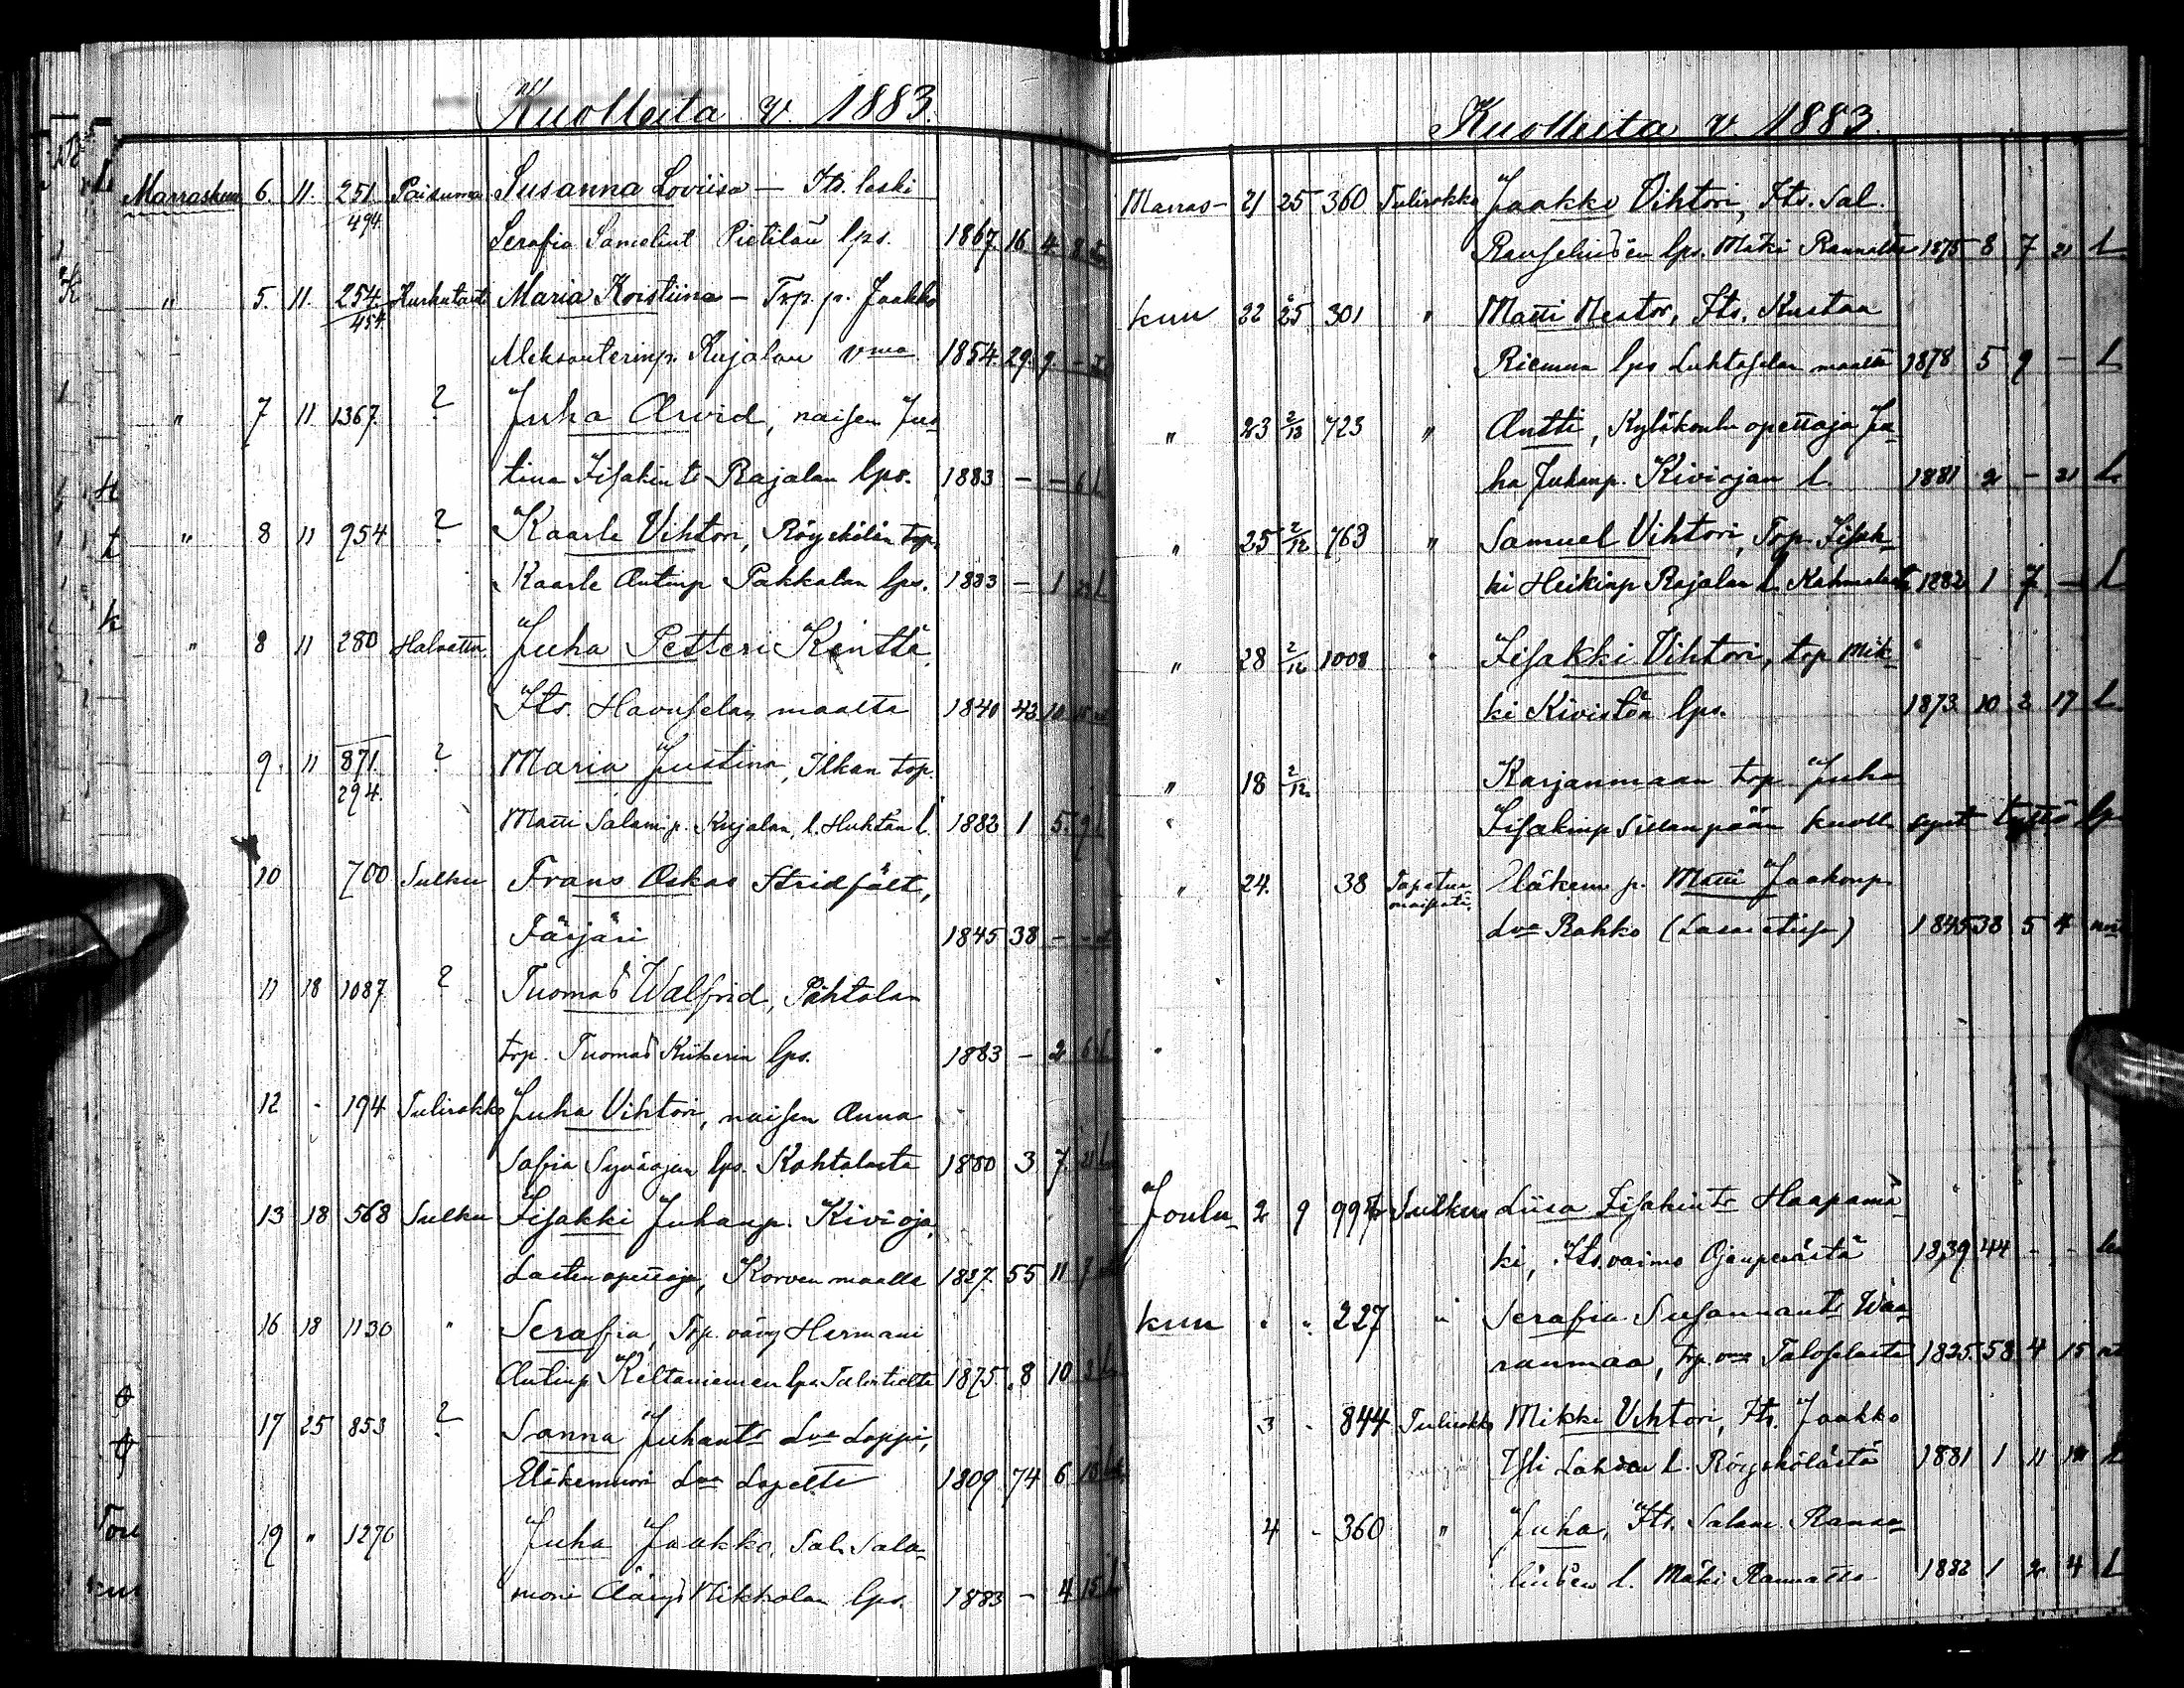 Kuolleita v. 1883.
Marraskuu 6. 11. 251. Paisuma Susanna Loviisa — Its. leski
494. Serafia Samelint Pietilän lps. 1867. 16 4 8
" 5. 11. 254 Maria Kristiina — Trp. p. Jaakko
454. Aleksanterinp. Kujalan vma 1854. 29. 9. –
" 7 11 1367. ? Juha Arvid, naisen Jus
tina Iisakin tr Rajalan lps. 1883 – – 6 L
" 8 11 954 ? Kaarle Vihtori, Röyskölän trp.
Kaarle Antinp Pakkalan lps. 1883 – 1 L
" 8 11 280 Halvattu. Juha Petteri Kenttä
Its. Havuselan maalta 1840 43 10
9. 11 871. ? Maria Justina, Ilkan trp.
294. Matti Salamp. Kujalan, l. Huhtan l. 1882 1 5. 9
10 700 Sulku Frans Oskar Stridfält,
Färjäri 1845 38 – –
11 18 1087 ? Tuomas Walfrid, Pahtalan
trp. Tuomas Kiikerin lps. 1883 – 2 6 L
12 - 194 Tulirokko Juha Vihtori, naisen Anna
Safia Syväojan lps. Kohtalasta 1880 3 7. 21
13 18 568 Sulku Iisakki Juhanp. Kivioja,
Lasten opettaja, Korven maalla 1827. 55 11 7
16 18 1130 " Serafia, Trp. väry Hermani
Antinp Keltaniemen lps. 1875. 8 10
17 25 853 ? Sanna Juhantr Loppi,
Eläkemuori Lopelta 1809 74 6 18
19 " 1270 Juha Jaakko, Tal. Salo-
moni Nikkolan lps. 1883 – 4 15
Kuolleita v. 1883.
Marras- 21 25 360 Tulirokko Jaakko Vihtori, Its. Sal.
lps. Mäki Rannalta 1875 8 7 21 L
kuu 22 25 301 " Matti Nestor, Its. Kustaa
Riemun lps Luhtaselan maalta 1878 5 9 – L
" 23 2/13 723 " Antti, Kyläkoulu opettaja Ju
ha Juhanp. Kiviojan l. 1881 2 – 21 L
" 25 2/12 763 " Samuel Vihtori, Trp. Iisak-
ki Heikinp Rajalan l. 1882 1 7 – L
" 28 2/16 1008 " Iisakki Vihtori, trp Mik-
ki Kivistön lps. 1873 10 2 17 L
" 18 2/12. Karjanmaan trp. Juha
Iisakinp Sillanpään kuoll. synt tyttö lps
" 24. 38 Tapatur maisesti. Eläkem. p. Matti Jaakonp
Rahko 1845 38 5 4
Joulu- 2 9 994 Sulku Liisa Iisakintr Haapamä
ki, Its. vaimo Ojanperästä 1839 44 – –
kuu " " 227 " Serafia Susannantr Waa
ranmaa, trp. vma Taloselasta 1825 58 4 15
3 - 844 Tulirokko Mikki Vihtori, Its. Jaakko
Yli Lahden l. Röyskölästä 1881 1 11
4 - 360 " Juha, Its. Salam. Ranse
linsen l. Mäki Rannalta 1882 1 2 4 L